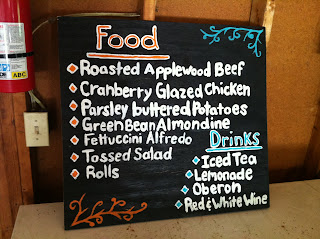 Food
Roasted Applewood Beef
Cranberry Glazed Chicken
Parsley buttered Potatoes
Green Bean Almondine
Fettuccini Alfredo
Tossed Salad
Rolls
Drinks
Iced Tea
Lemonade
Oberon
Red & White Wine
ABC